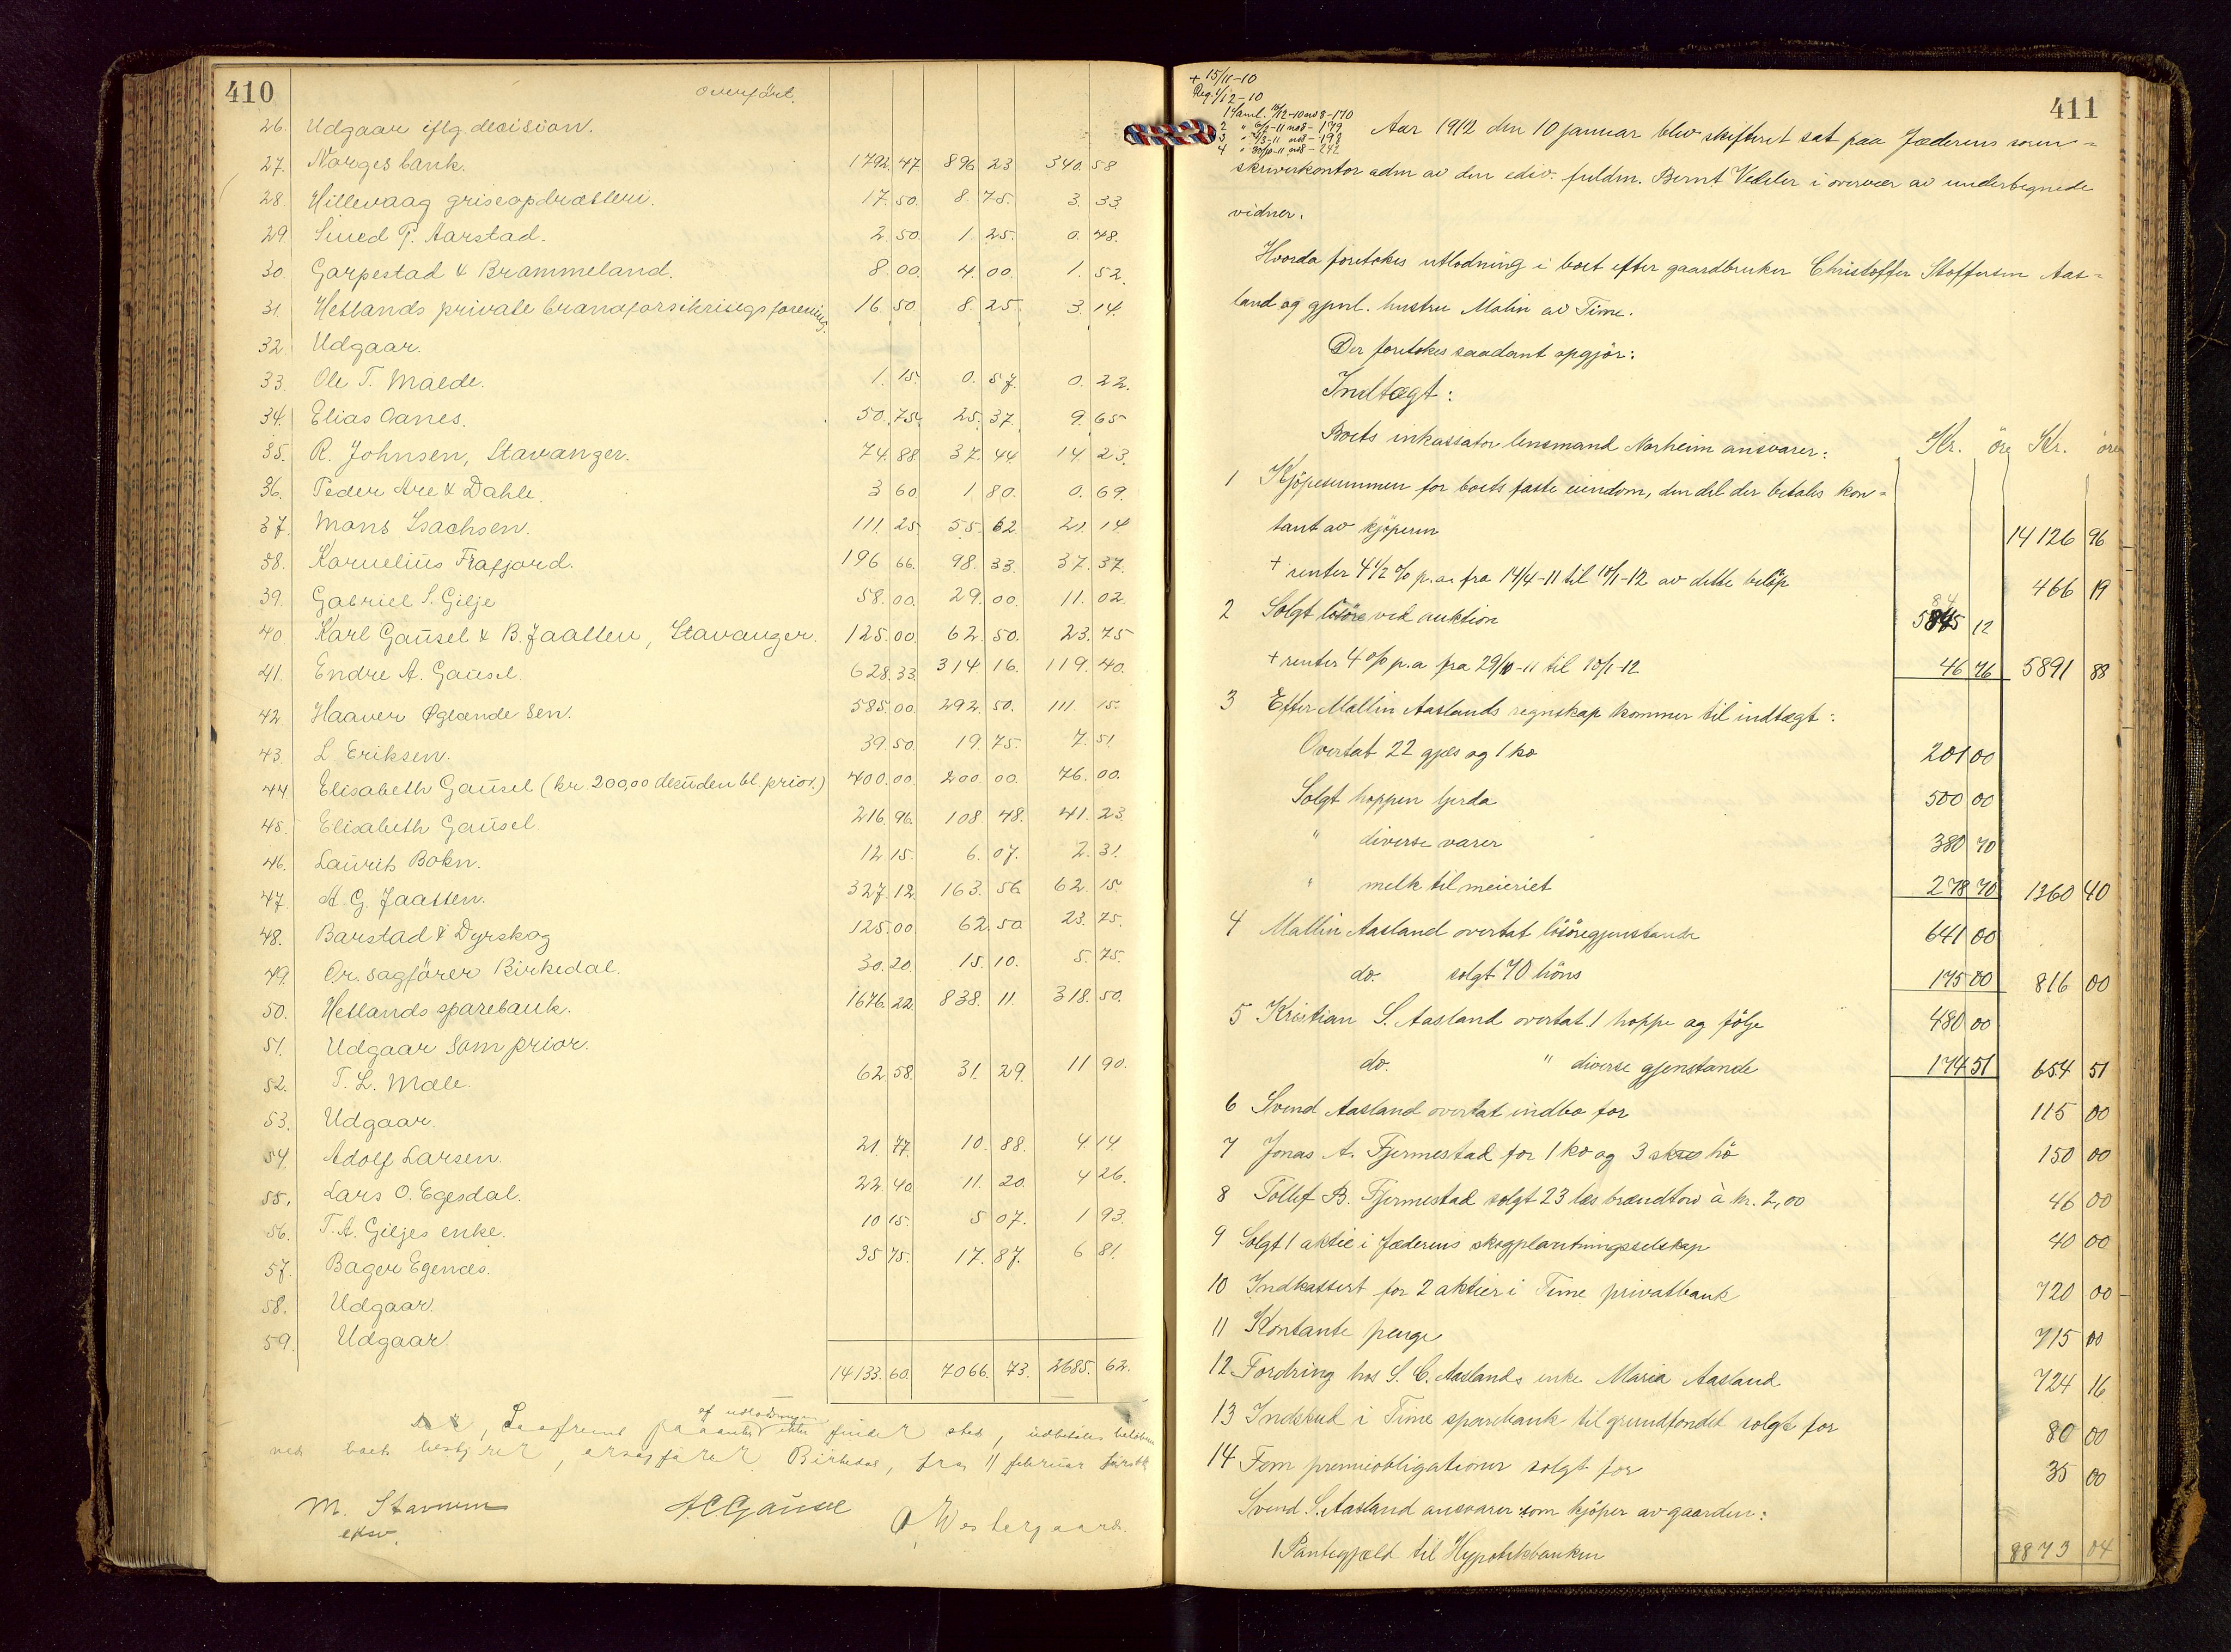 410
overført.
26. Udgaar iflg. decision.
27. Norges bank. 1792.47. 896 23 340.58
28. Hillevaag griseopdrætteri. 17.50. 8.75. 3.33.
29 Sined T. Aarstad. 2.50. 1.25. 0.48.
30. Garpestad & Brammeland. 8 00. 4.00 1.52.
31. Hetlands private brandforsikrings forening. 16 50 8.25. 3.14.
32 Udgaar.
33. Ole T. Malde. 1.15. 0.57. 0.22.
34. Elias Oanes. 50.75. 25.37. 9.65
35. R. Johnsen, Stavanger. 74.88 37.44. 14.23.
36. Peder Are & Dahle. 3 60 1.80. 0.69.
37. Mons Isachsen. 111.25. 55.62 21.14
38. Kornelius Frafjord. 196 66. 98.33. 37.37.
39. Gabriel S. Gilje 58.00. 29.00. 11.02.
40 Karl Gausel & B. Jaatten, Stavanger. 125.00. 62.50. 23.75
41. Endre A. Gausel. 628.33. 314 16. 119.40.
42. Haaver Øglænde sen. 585.00. 292.50. 111.15.
43. L. Eriksen. 39.50. 19.75. 7.51.
44 Elisabeth Gausel (kr. 200,00 desuden bl. prior.) 400.00. 200.00. 76.00.
45. Elisabeth Gausel 216.96. 108.48. 41.23.
46. Laurits Bokn. 12.15. 6.07. 2.31.
47. A. G. Jaatten. 327.12. 163.56 62.15
48. Barstad & Dyrskog 125.00 62.50. 23.75.
49. Or. sagfører Birkedal. 30.20. 15.10. 5.75.
50. Hetlands sparebank. 1676.22. 838.11. 318.50.
51. Udgaar som prior.
52. T. L. Mæle. 62.58. 31.29. 11 90.
53. Udgaar.
54. Adolf Larsen. 21.77. 10.88. 4.14.
55. Lars O. Egesdal. 22.40 11.20. 4 26.
56. T. A. Giljes enke. 10 15. 5 07. 1 93.
57. Bager Egenæs. 35 75. 17.87. 6 81.
58. Udgaar.
59. Udgaar.
14133.60. 7066.73. 2685.62.
af udlodningen
Saafremt paaanke ikke finder sted, udbetales beløbene
ved boets bestyrer, orsagfører Birkedal, fra 11 februar førstk
M. Stavnem
eksv.
A C Gausel
O. Westergaard.
411
+ 15/11-10
Reg. 1/12-10
1 Saml. 15/12-10 ns 8-170
2 " 6/2-11 ns 8-179
3 " 2/3-11 ns 8-198
4 " 30/10-11 ns 8-242
Aar 1912 den 10 januar blev skifteret sat paa Jæderens soren=
skriverkontor adm av den ediv. fuldm. Bernt Vedeler i overvær av undertegnede
vidner.
Hvorda foretokes utlodning i boet efter gaardbruker Christoffer Stoffersen Aas=
land og gjenl. hustru Malin av Time.
Der foretokes saadant opgjör:
Indtægt:
Boets inkassator lensmand Norheim ansvarer: Kr. öre Kr. öre
1 Kjöpesummen for boets faste eiendom, den del der betales kon=
tant av kjöperen 14126 96
+ renter 4 1/2 % p.a. fra 14/4-11 til 10/1-12 av dette belöp 466 19
2 Solgt lösöre ved auktion 5845 12
+ renter 4 % p.a fra 29/10-11 til 10/1-12 46 76 5891 88
3 Efter Mallin Aaslands regnskap kommer til indtægt:
Overtat 22 gjæs og 1 ko 201 00
Solgt hoppen Gerda 500 00
" diverse varer 380 70
" melk til meieriet 278 70 1360 40
4 Mallin Aasland overtat lösöregjenstande 641 00
do. solgt 70 höns 175 00 816 00
5 Kristian S. Aasland overtat 1 hoppe og följe 480 00
do. " diverse gjenstande 174 51 654 51
6 Svend Aasland overtat indbo for 115 00
7 Jonas A. Fjermestad for 1 ko og 3 skæs hö 150 00
8 Tollef B. Fjermestad solgt 23 læs brændtorv à kr. 2,00 46 00
9 Solgt 1 aktie i Jæderens skogplantningsselskap 40 00
10 Indkassert for 2 aktier i Time privatbank 720 00
11 Kontante penge 715 00
12 Fordring hos S. C. Aaslands enke Maria Aasland 724 16
13 Indskud i Time sparebank til grundfondet solgt for 80 00
14 Fem premieobligationer solgt for 35 00
Svend S. Aasland ansvarer som kjöper av gaarden:
1 Pantegjæld til Hypotekbanken 8873 04